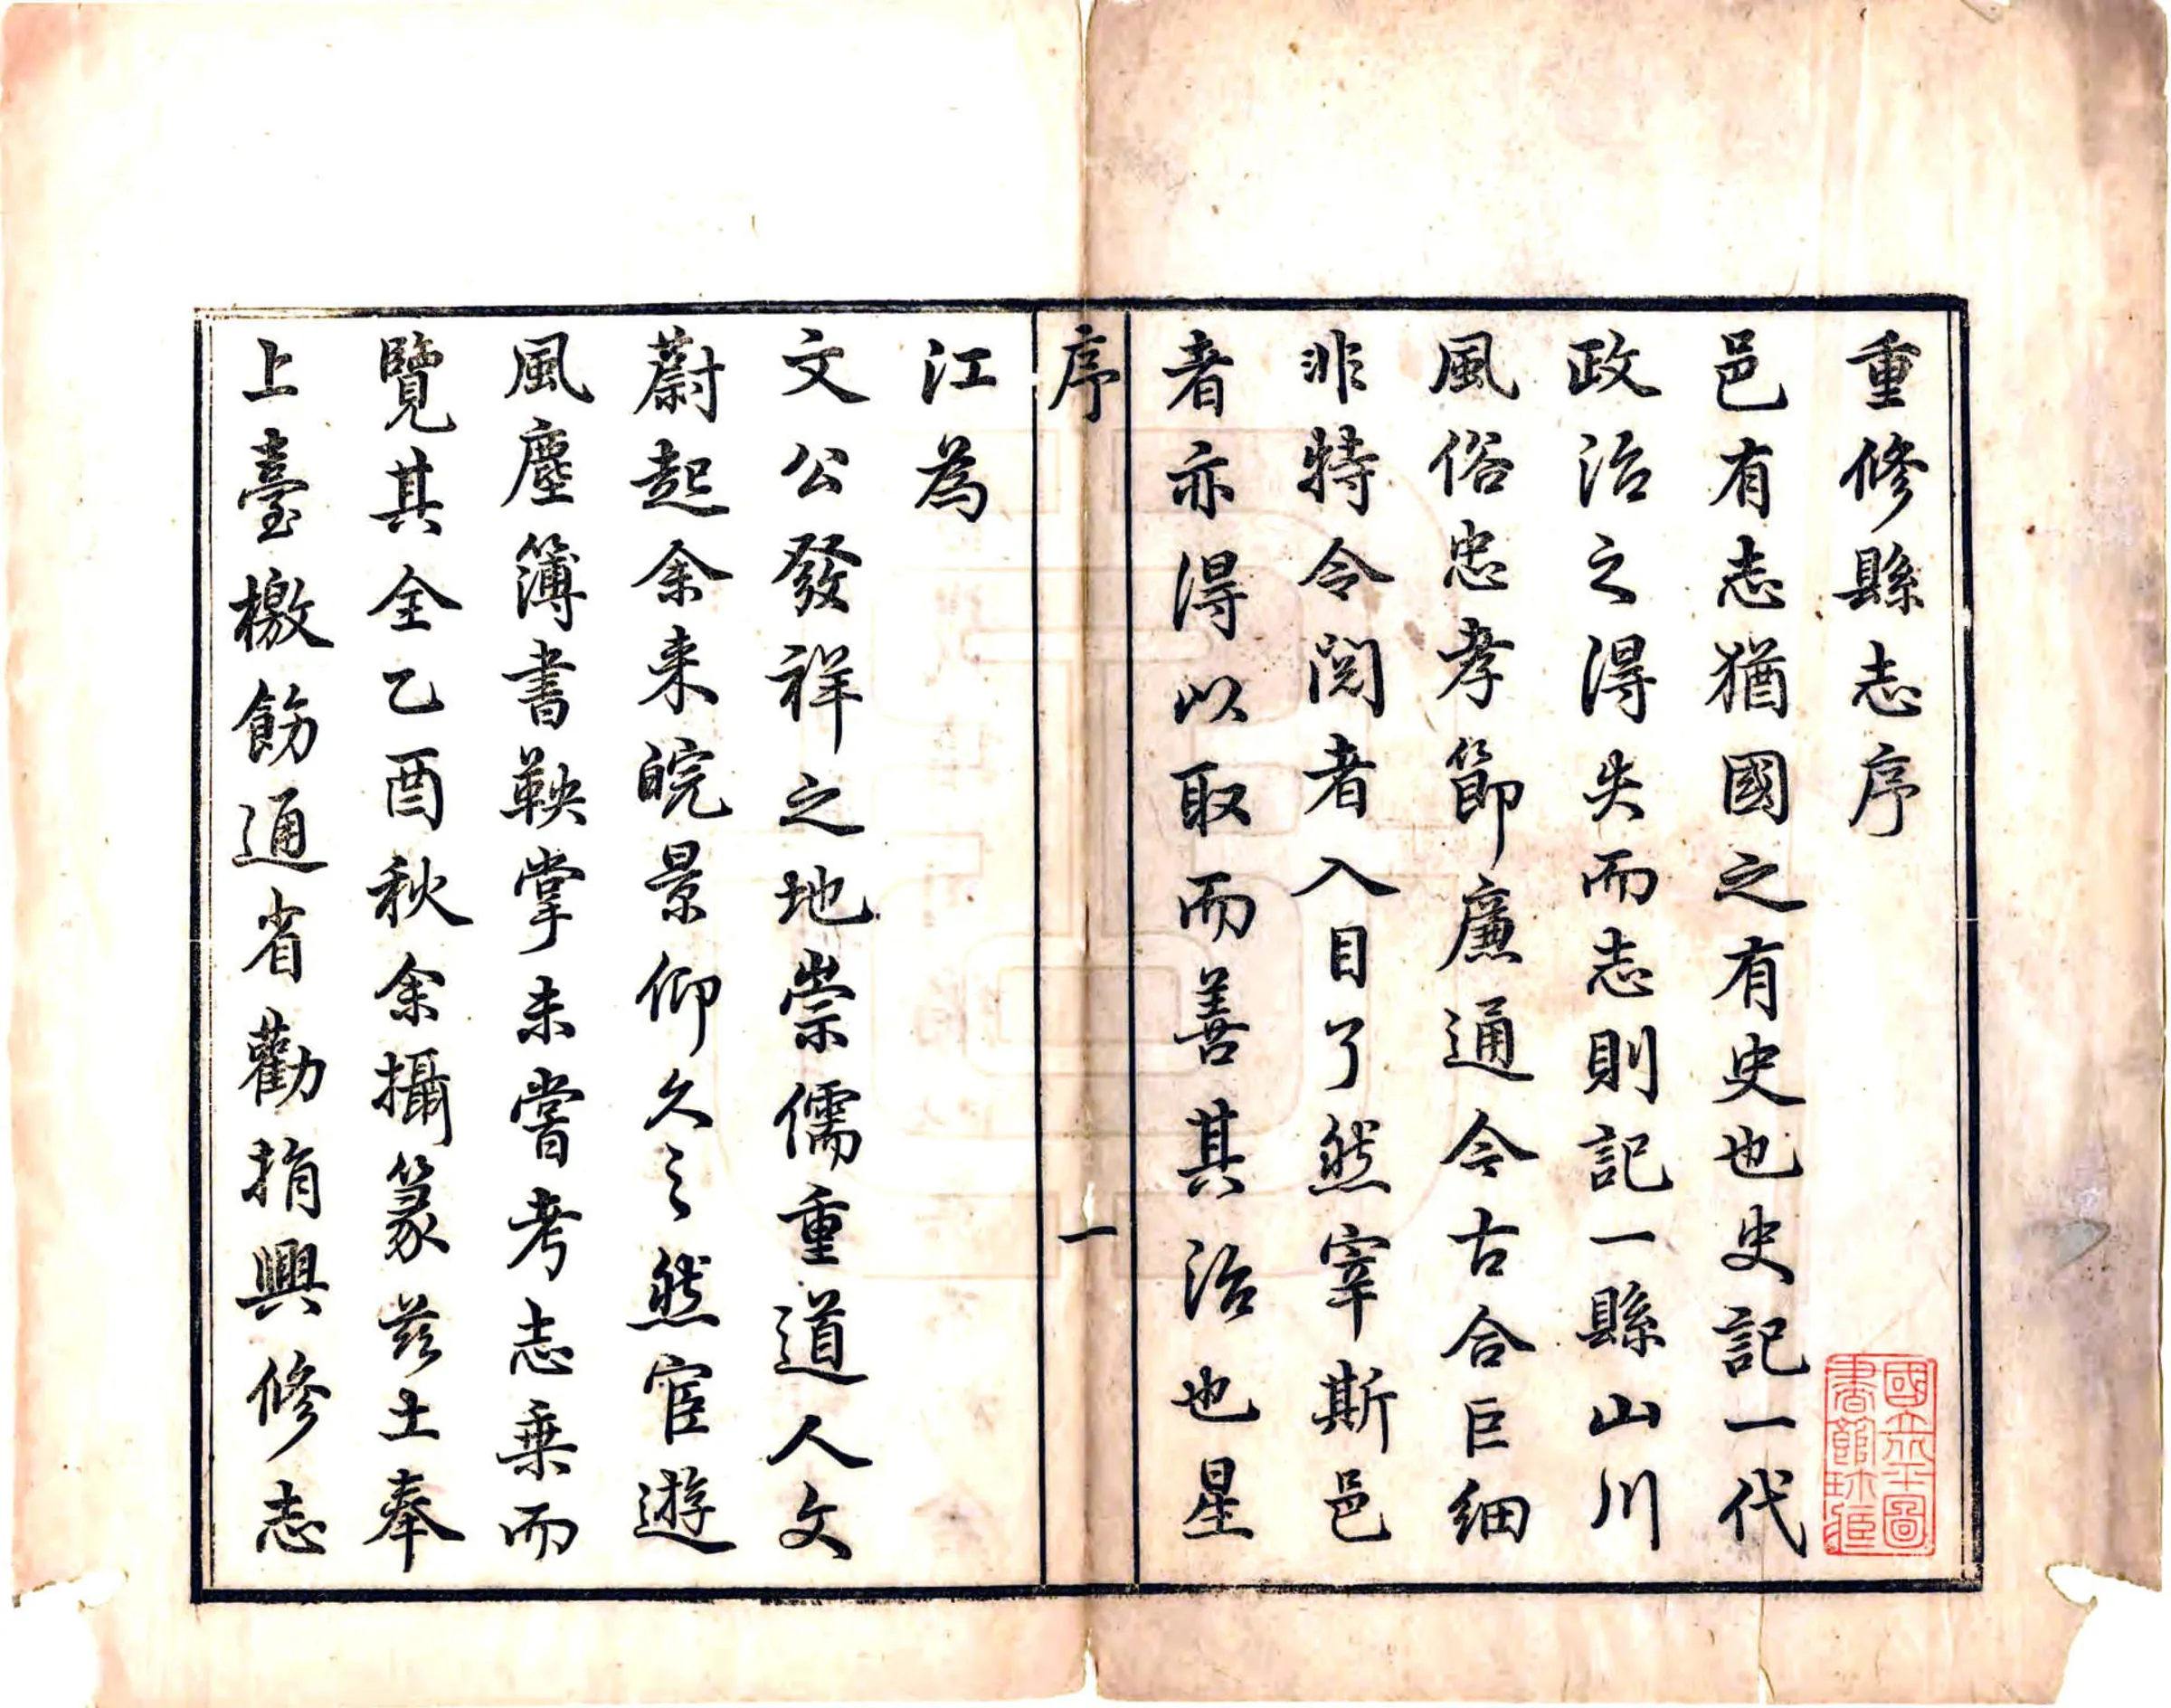 重修縣志序
邑有志猶國之有史也史記一代
政治之得失而志則記一縣山川
風俗忠孝節廉通今古合巨細
非特令閱者入目了然宰斯邑
者亦得以取而善其治也星
序
一
江為
文公發祥之地崇儒重道人文
蔚起余来皖景仰久之然宦遊
風塵簿書鞅掌未嘗考志乗而
覽其全乙酉秋余攝篆茲土奉
上臺檄飭通省勸捐興修志
國立北平圖
書館珍藏